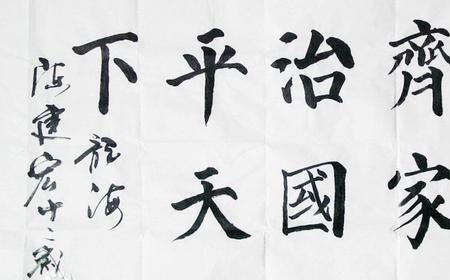 齊家
治國
平天
下
龍海
陳建宏十二歲